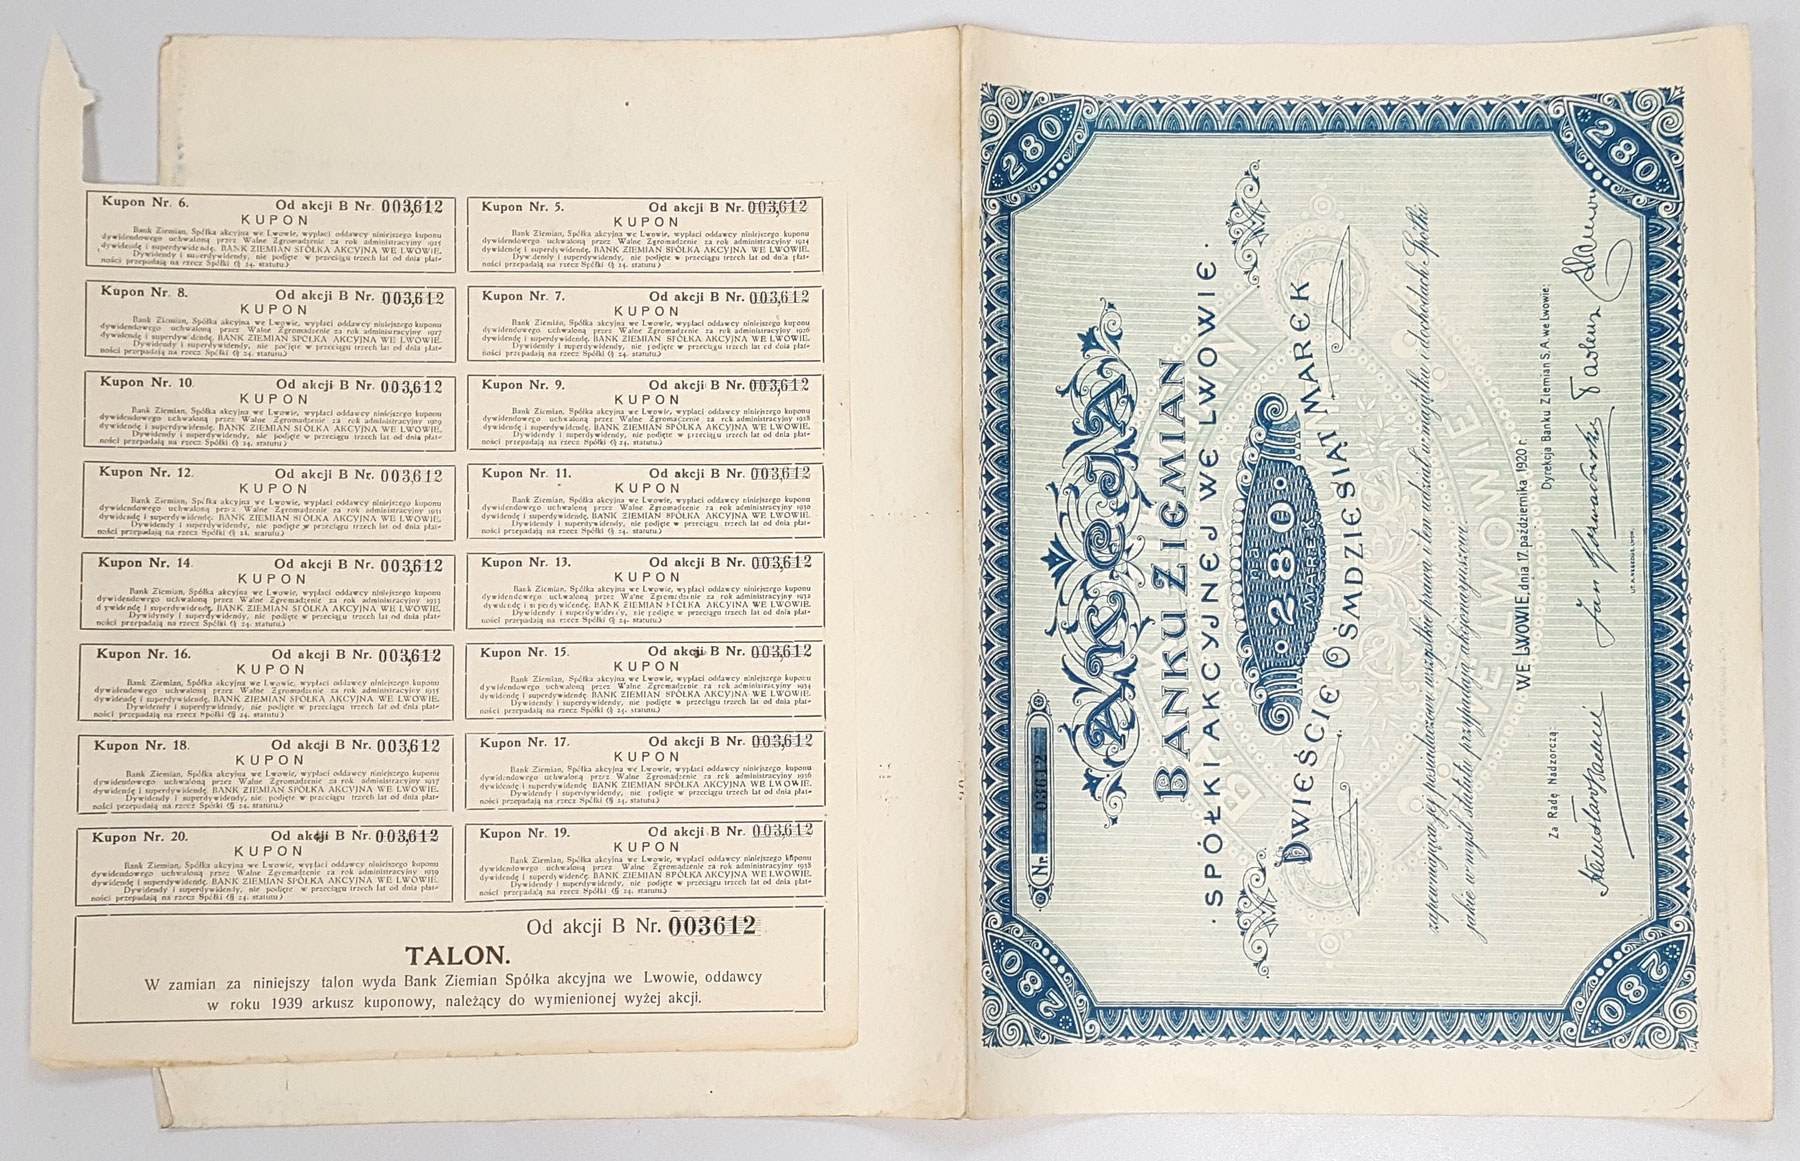 Kupon Nr. 6. Od akcji B Nr. 003,612
KUPON
Bank Ziemian, Spółka akcyjna we Lwowie, wypłaci oddawcy niniejszego kuponu
dywidendowego uchwaloną przez Walne Zgromadzenie za rok administracyjny 1925
dywidendę i superdywidendę. BANK ZIEMIAN SPÓŁKA AKCYJNA WE LWOWIE.
Dywidendy i superdywidendy, nie podjęte w przeciągu trzech lat od dnia płat-
ności przepadają na rzecz Spółki (§ 24. statutu.)
Kupon Nr. 5. Od akcji B Nr. 003,612
KUPON
Bank Ziemian, Spółka akcyjna we Lwowie, wypłaci oddawcy niniejszego kuponu
dywidendowego uchwaloną przez Walne Zgromadzenie za rok administracyjny 1924
dywidendę i superdywidendę. BANK ZIEMIAN SPÓŁKA AKCYJNA WE LWOWIE.
Dywidendy i superdywidendy, nie podjęte w przeciągu trzech lat od dnia płat-
ności przepadają na rzecz Spółki (§ 24. statutu.)
Kupon Nr. 8. Od akcji B Nr. 003,612
KUPON
Bank Ziemian, Spółka akcyjna we Lwowie, wypłaci oddawcy niniejszego kuponu
dywidendowego uchwaloną przez Walne Zgromadzenie za rok administracyjny 1927
dywidendę i superdywidendę. BANK ZIEMIAN SPÓŁKA AKCYJNA WE LWOWIE.
Dywidendy i superdywidendy, nie podjęte w przeciągu trzech lat od dnia płat-
ności przepadają na rzecz Spółki (§ 24. statutu.)
Kupon Nr. 7. Od akcji B Nr. 003,612
KUPON
Bank Ziemian, Spółka akcyjna we Lwowie, wypłaci oddawcy niniejszego kuponu
dywidendowego uchwaloną przez Walne Zgromadzenie za rok administracyjny 1926
dywidendę i superdywidendę. BANK ZIEMIAN SPÓŁKA AKCYJNA WE LWOWIE.
Dywidendy i superdywidendy, nie podjęte w przeciągu trzech lat od dnia płat-
ności przepadają na rzecz Spółki (§ 24. statutu.)
Kupon Nr. 10. Od akcji B Nr. 003,612
KUPON
Bank Ziemian, Spółka akcyjna we Lwowie, wypłaci oddawcy niniejszego kuponu
dywidendowego uchwaloną przez Walne Zgromadzenie za rok administracyjny 1929
dywidendę i superdywidendę. BANK ZIEMIAN SPÓŁKA AKCYJNA WE LWOWIE.
Dywidendy i superdywidendy, nie podjęte w przeciągu trzech lat od dnia płat-
ności przepadają na rzecz Spółki (§ 24. statutu.)
Kupon Nr. 9. Od akcji B Nr. 003,612
KUPON
Bank Ziemian, Spółka akcyjna we Lwowie, wypłaci oddawcy niniejszego kuponu
dywidendowego uchwaloną przez Walne Zgromadzenie za rok administracyjny 1928
dywidendę i superdywidendę. BANK ZIEMIAN SPÓŁKA AKCYJNA WE LWOWIE.
Dywidendy i superdywidendy, nie podjęte w przeciągu trzech lat od dnia płat-
ności przepadają na rzecz Spółki (§ 24. statutu.)
Kupon Nr. 12. Od akcji B Nr. 003,612
KUPON
Bank Ziemian, Spółka akcyjna we Lwowie, wypłaci oddawcy niniejszego kuponu
dywidendowego uchwaloną przez Walne Zgromadzenie za rok administracyjny 1931
dywidendę i superdywidendę. BANK ZIEMIAN SPÓŁKA AKCYJNA WE LWOWIE.
Dywidendy i superdywidendy, nie podjęte w przeciągu trzech lat od dnia płat-
ności przepadają na rzecz Spółki (§ 24. statutu.)
Kupon Nr. 11. Od akcji B Nr. 003,612
KUPON
Bank Ziemian, Spółka akcyjna we Lwowie, wypłaci oddawcy niniejszego kuponu
dywidendowego uchwaloną przez Walne Zgromadzenie za rok administracyjny 1930
dywidendę i superdywidendę. BANK ZIEMIAN SPÓŁKA AKCYJNA WE LWOWIE.
Dywidendy i superdywidendy, nie podjęte w przeciągu trzech lat od dnia płat-
ności przepadają na rzecz Spółki (§ 24. statutu.)
Kupon Nr. 14. Od akcji B Nr. 003,612
KUPON
Bank Ziemian, Spółka akcyjna we Lwowie, wypłaci oddawcy niniejszego kuponu
dywidendowego uchwaloną przez Walne Zgromadzenie za rok administracyjny 1933
dywidendę i superdywidendę. BANK ZIEMIAN SPÓŁKA AKCYJNA WE LWOWIE.
Dywidendy i superdywidendy, nie podjęte w przeciągu trzech lat od dnia płat-
ności przepadają na rzecz Spółki (§ 24. statutu.)
Kupon Nr. 13. Od akcji B Nr. 003,612
KUPON
Bank Ziemian, Spółka akcyjna we Lwowie, wypłaci oddawcy niniejszego kuponu
dywidendowego uchwaloną przez Walne Zgromadzenie za rok administracyjny 1932
dywidendę i superdywidendę. BANK ZIEMIAN SPÓŁKA AKCYJNA WE LWOWIE.
Dywidendy i superdywidendy, nie podjęte w przeciągu trzech lat od dnia płat-
ności przepadają na rzecz Spółki (§ 24. statutu.)
Kupon Nr. 16. Od akcji B Nr. 003,612
KUPON
Bank Ziemian, Spółka akcyjna we Lwowie, wypłaci oddawcy niniejszego kuponu
dywidendowego uchwaloną przez Walne Zgromadzenie za rok administracyjny 1935
dywidendę i superdywidendę. BANK ZIEMIAN SPÓŁKA AKCYJNA WE LWOWIE.
Dywidendy i superdywidendy, nie podjęte w przeciągu trzech lat od dnia płat-
ności przepadają na rzecz Spółki (§ 24. statutu.)
Kupon Nr. 15. Od akcji B Nr. 003,612
KUPON
Bank Ziemian, Spółka akcyjna we Lwowie, wypłaci oddawcy niniejszego kuponu
dywidendowego uchwaloną przez Walne Zgromadzenie za rok administracyjny 1934
dywidendę i superdywidendę. BANK ZIEMIAN SPÓŁKA AKCYJNA WE LWOWIE.
Dywidendy i superdywidendy, nie podjęte w przeciągu trzech lat od dnia płat-
ności przepadają na rzecz Spółki (§ 24. statutu.)
Kupon Nr. 18. Od akcji B Nr. 003,612
KUPON
Bank Ziemian, Spółka akcyjna we Lwowie, wypłaci oddawcy niniejszego kuponu
dywidendowego uchwaloną przez Walne Zgromadzenie za rok administracyjny 1937
dywidendę i superdywidendę. BANK ZIEMIAN SPÓŁKA AKCYJNA WE LWOWIE.
Dywidendy i superdywidendy, nie podjęte w przeciągu trzech lat od dnia płat-
ności przepadają na rzecz Spółki (§ 24. statutu.)
Kupon Nr. 17. Od akcji B Nr. 003,612
KUPON
Bank Ziemian, Spółka akcyjna we Lwowie, wypłaci oddawcy niniejszego kuponu
dywidendowego uchwaloną przez Walne Zgromadzenie za rok administracyjny 1936
dywidendę i superdywidendę. BANK ZIEMIAN SPÓŁKA AKCYJNA WE LWOWIE.
Dywidendy i superdywidendy, nie podjęte w przeciągu trzech lat od dnia płat-
ności przepadają na rzecz Spółki (§ 24. statutu.)
Kupon Nr. 20. Od akcji B Nr. 003,612
KUPON
Bank Ziemian, Spółka akcyjna we Lwowie, wypłaci oddawcy niniejszego kuponu
dywidendowego uchwaloną przez Walne Zgromadzenie za rok administracyjny 1939
dywidendę i superdywidendę. BANK ZIEMIAN SPÓŁKA AKCYJNA WE LWOWIE.
Dywidendy i superdywidendy, nie podjęte w przeciągu trzech lat od dnia płat-
ności przepadają na rzecz Spółki (§ 24. statutu.)
Kupon Nr. 19. Od akcji B Nr. 003,612
KUPON
Bank Ziemian, Spółka akcyjna we Lwowie, wypłaci oddawcy niniejszego kuponu
dywidendowego uchwaloną przez Walne Zgromadzenie za rok administracyjny 1938
dywidendę i superdywidendę. BANK ZIEMIAN SPÓŁKA AKCYJNA WE LWOWIE.
Dywidendy i superdywidendy, nie podjęte w przeciągu trzech lat od dnia płat-
ności przepadają na rzecz Spółki (§ 24. statutu.)
Od akcji B Nr. 003612
TALON.
W zamian za niniejszy talon wyda Bank Ziemian Spółka akcyjna we Lwowie, oddawcy
w roku 1939 arkusz kuponowy, należący do wymienionej wyżej akcji.
280
280
Nr. 03612
AKCJA
BANKU ZIEMIAN
· SPÓŁKI AKCYJNEJ WE LWOWIE ·
· 280 ·
MAREK
DWIEŚCIE OŚMDZIESIĄT MAREK
zapewniająca jej posiadaczowi wszystkie prawa i ten udział w majątku i dochodach Spółki
jakie w myśl statutu przypadają akcjonarjuszowi.
WE LWOWIE, dnia 17. października 1920 r.
Za Radę Nadzorczą: Dyrekcja Banku Ziemian S. A. we Lwowie:
280
280